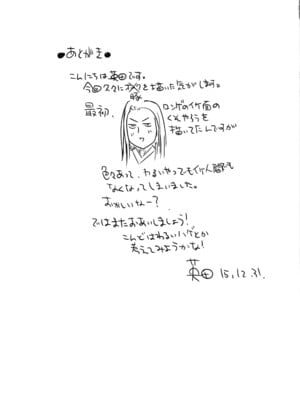 ●あとがき●
こんにちは英田です。
今回スグにオメガを描いた気がします。
豚
最初、ロンゲのイケ面の
くんやろうを
描いてたんですが
色々あって、わるいやつでもイケ人間でも
なくなってしまいました。
おかしいなー？
ではまたおあいしましょう！
こんどはわるいハゲとか
考えてみようかな！
英田 15.12.31.